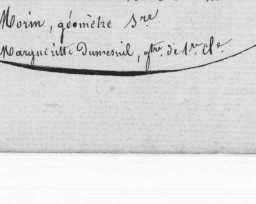 Morin, géomètre Sre
Marguerite Dumesnil, gtre. de 1re. cle.